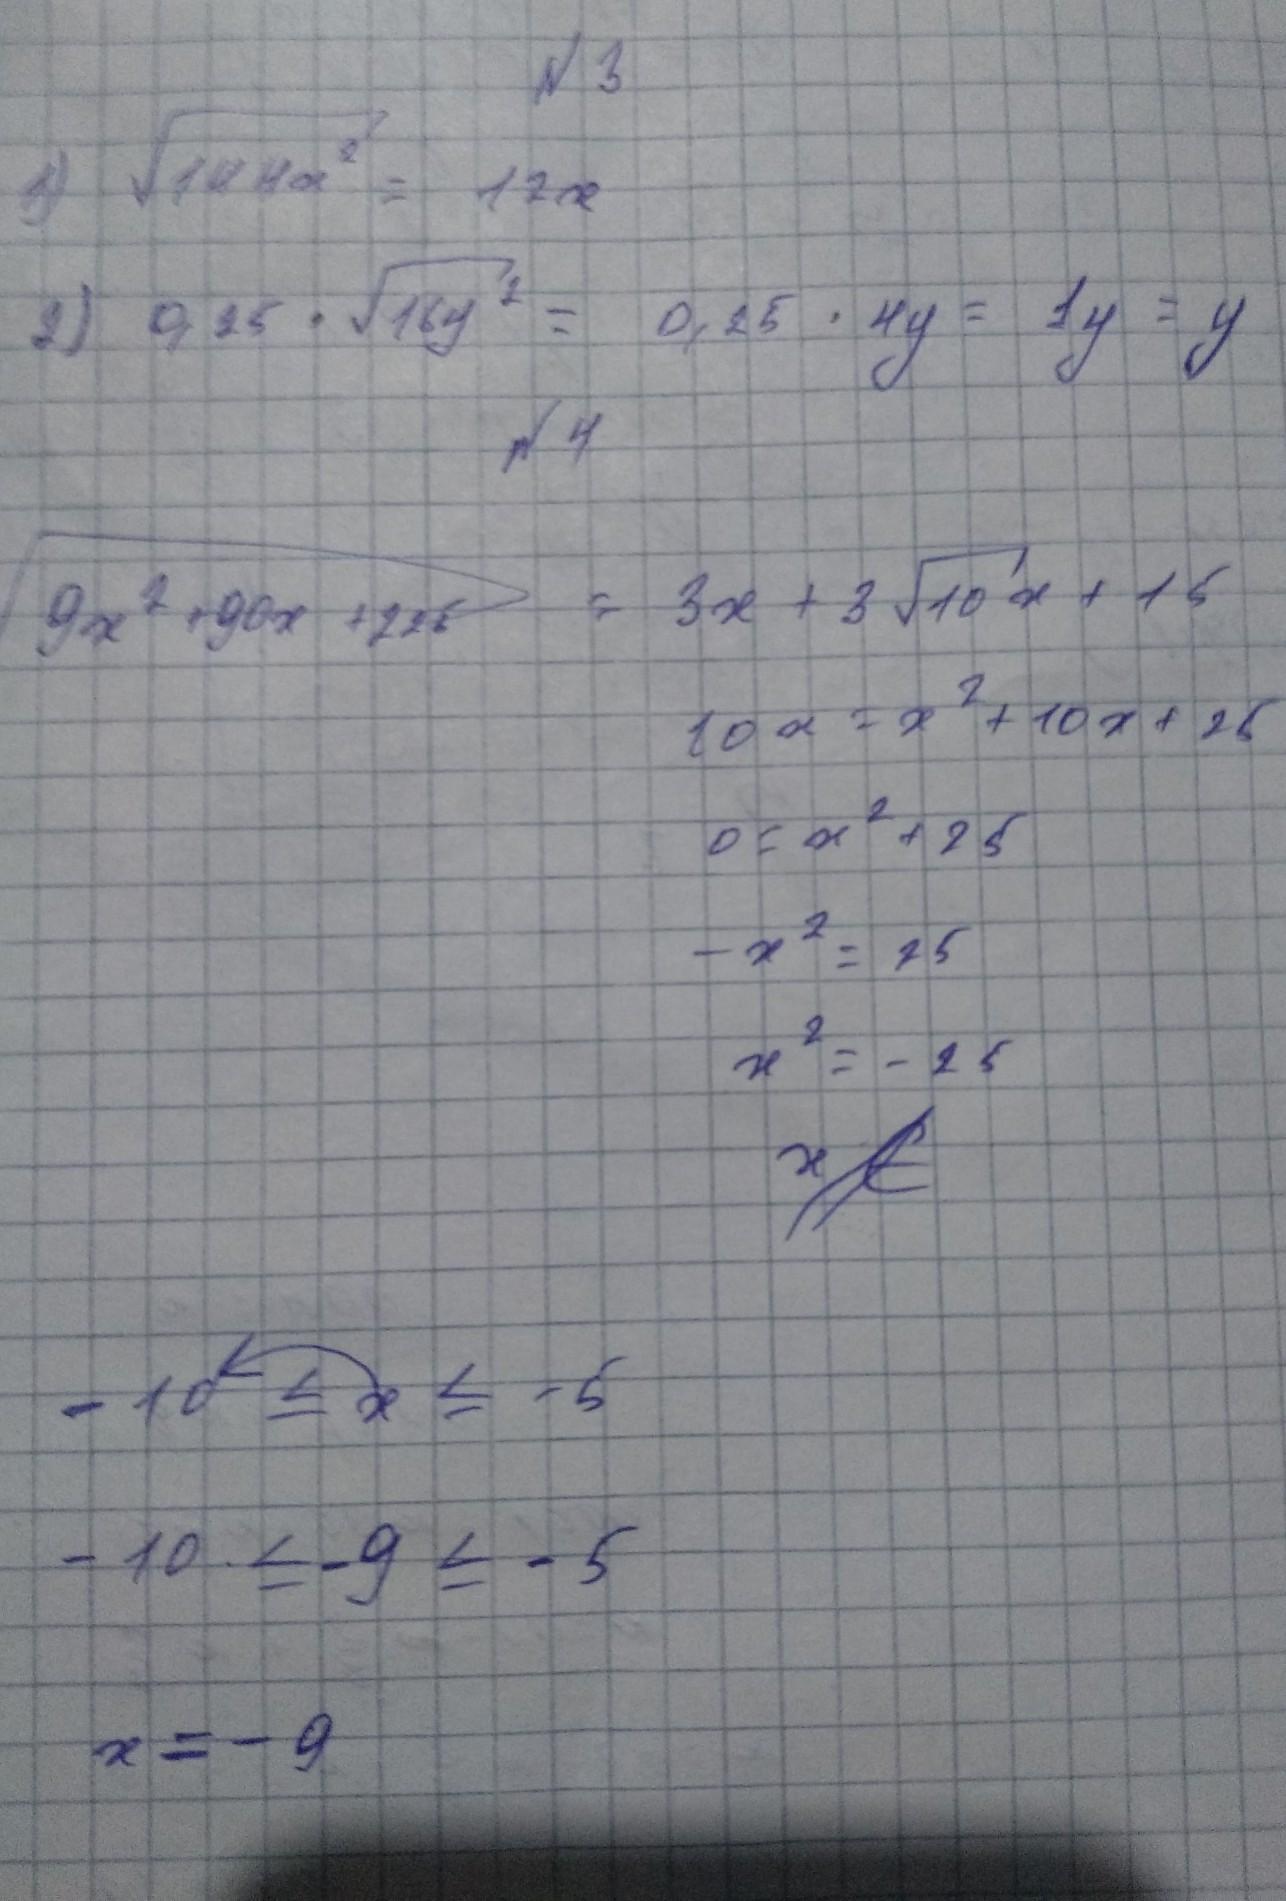 № 3
1) √144x² = 12x
2) 0,25 · √16y² = 0,25 · 4y = 1y = y
№ 4
√9x² + 90x + 225 = 3x + 3√10x + 15
10x = x² + 10x + 25
0 = x² + 25
-x² = 25
x² = -25
x
-10 ≤ x ≤ -5
-10 ≤ -9 ≤ -5
x = -9